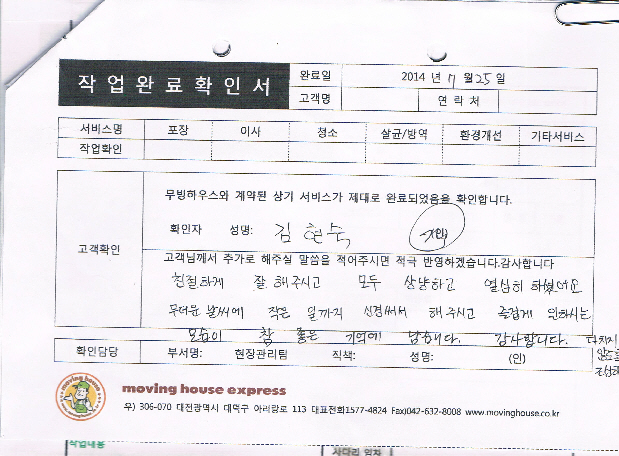 작업완료확인서
완료일 2014 년 7 월 25 일
고객명 연락처
서비스명 포장 이사 청소 살균/방역 환경개선 기타서비스
작업확인
고객확인
무빙하우스와 계약된 상기 서비스가 제대로 완료되었음을 확인합니다.
확인자 성명: 김현숙
고객님께서 추가로 해주실 말씀을 적어주시면 적극 반영하겠습니다.감사합니다
친절하게 잘 해주시고 모두 상냥하고 열심히 하셨어요
무더운 날씨에 작은 일까지 신경써서 해주시고 즐겁게 일하시는
모습이 참 좋은 기억에 남습니다. 감사합니다. 다치지
않도록
확인담당 부서명: 현장관리팀 직책: 성명: (인)
moving house
moving house express
우) 306-070 대전광역시 대덕구 아리랑로 113 대표전화1577-4824 Fax)042-632-8008 www.movinghouse.co.kr
작업내용
사다리 임차